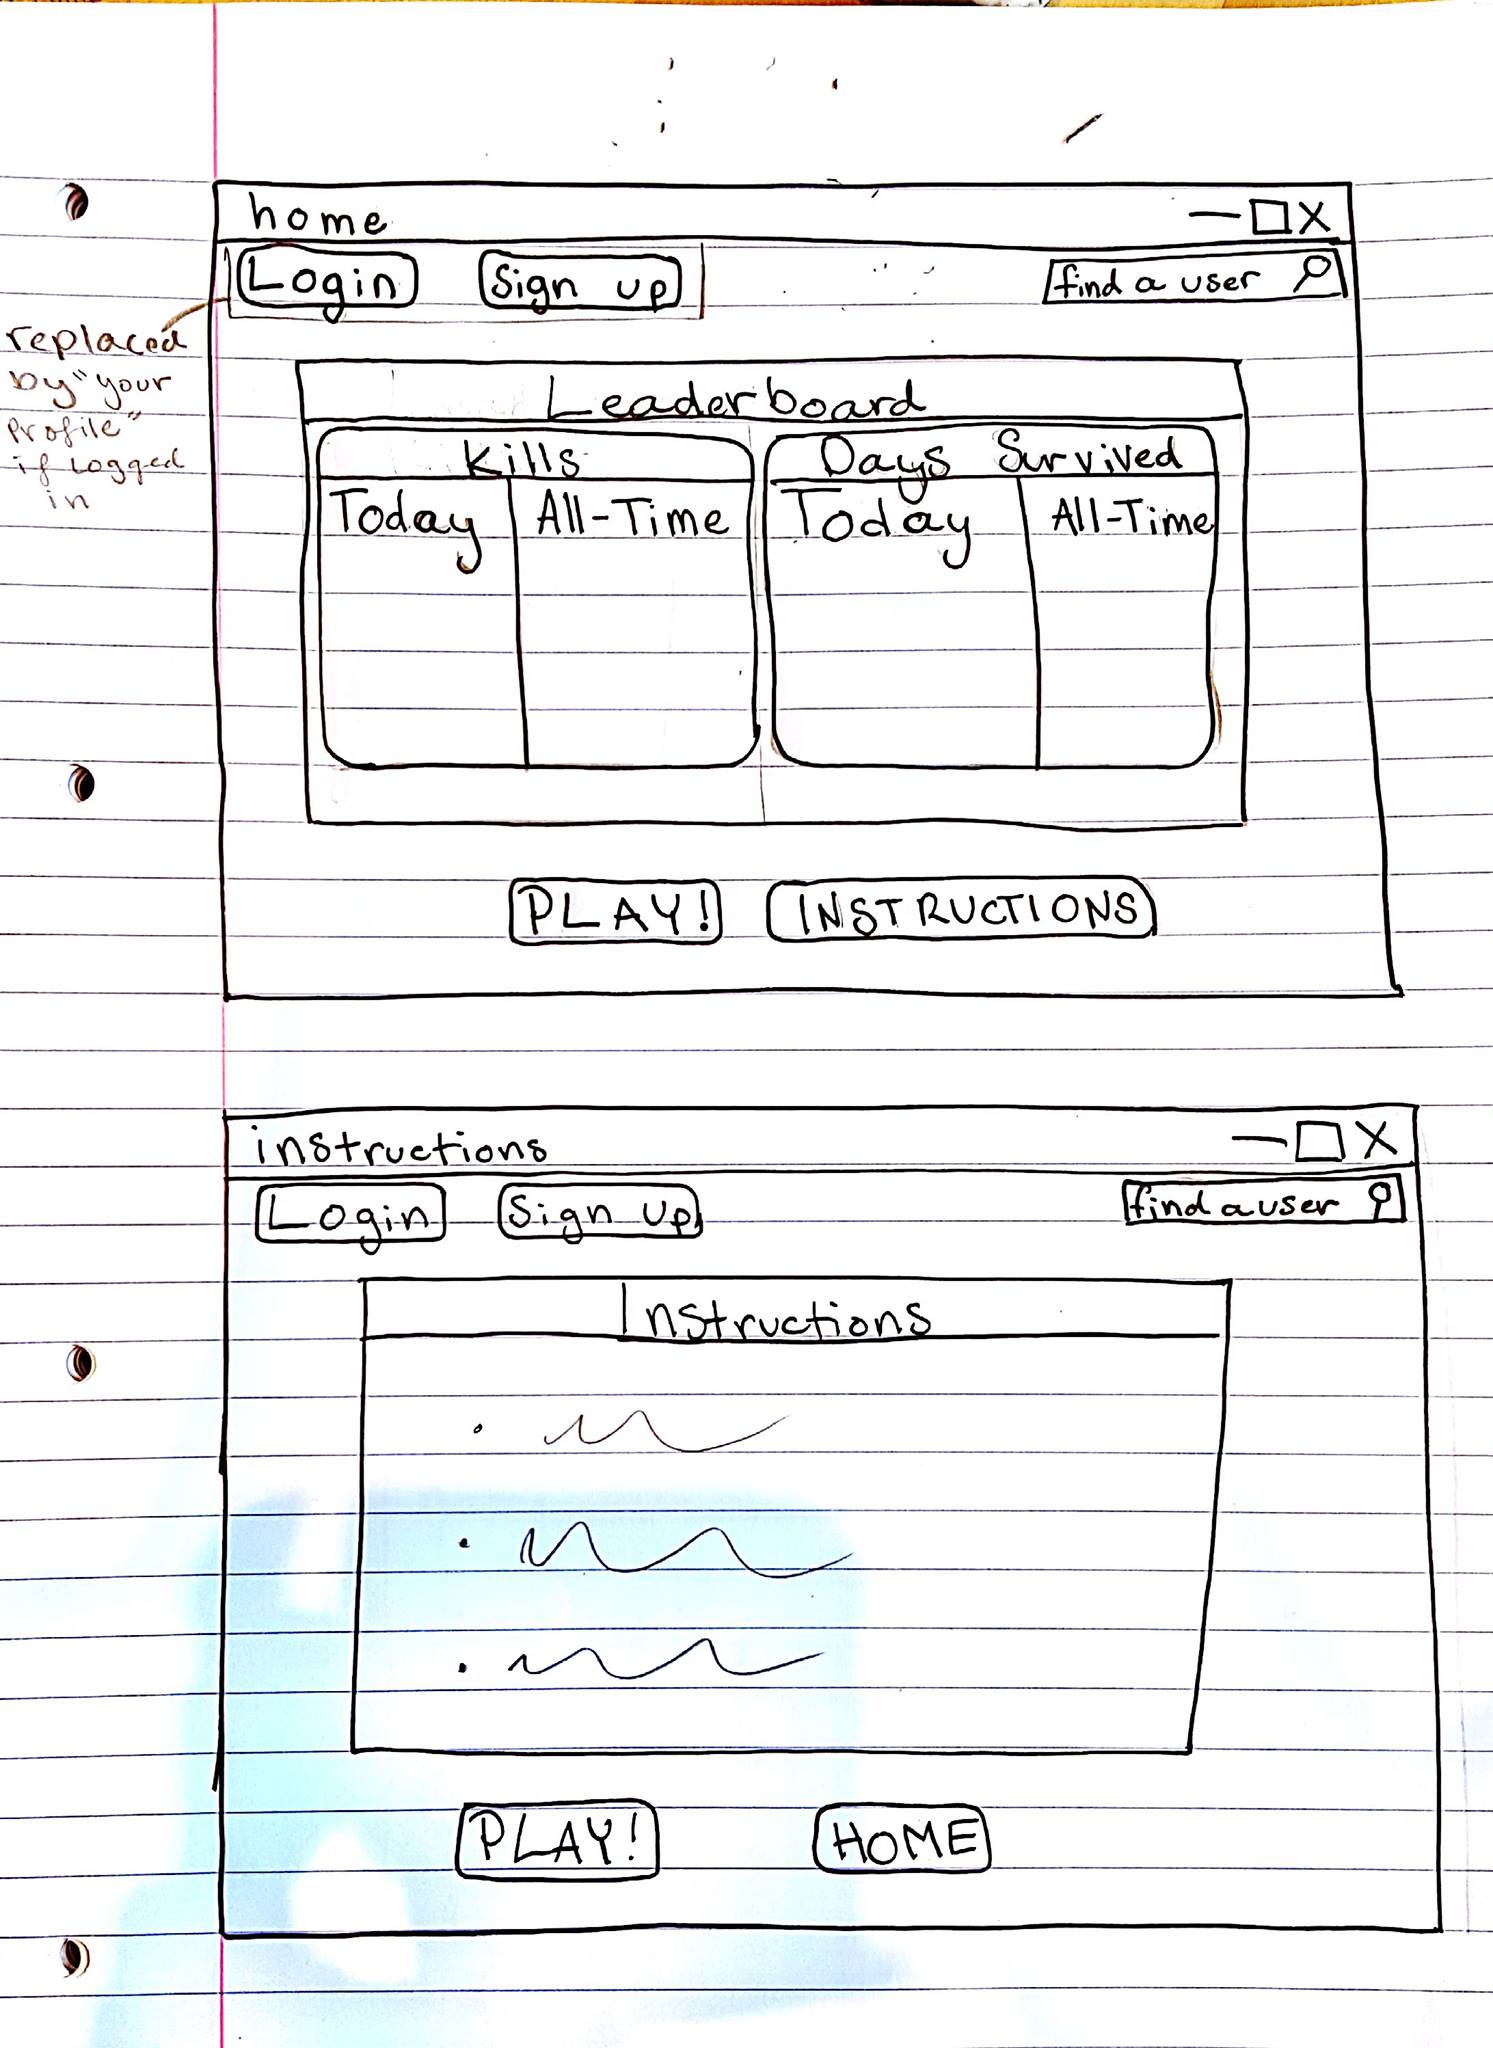 home — □ X
Login Sign up find a user
replaced
by "your
profile"
if logged
in
Leaderboard
Kills Days Survived
Today All-Time Today All-Time
PLAY! INSTRUCTIONS
instructions — □ X
Login Sign up find a user
Instructions
PLAY! HOME